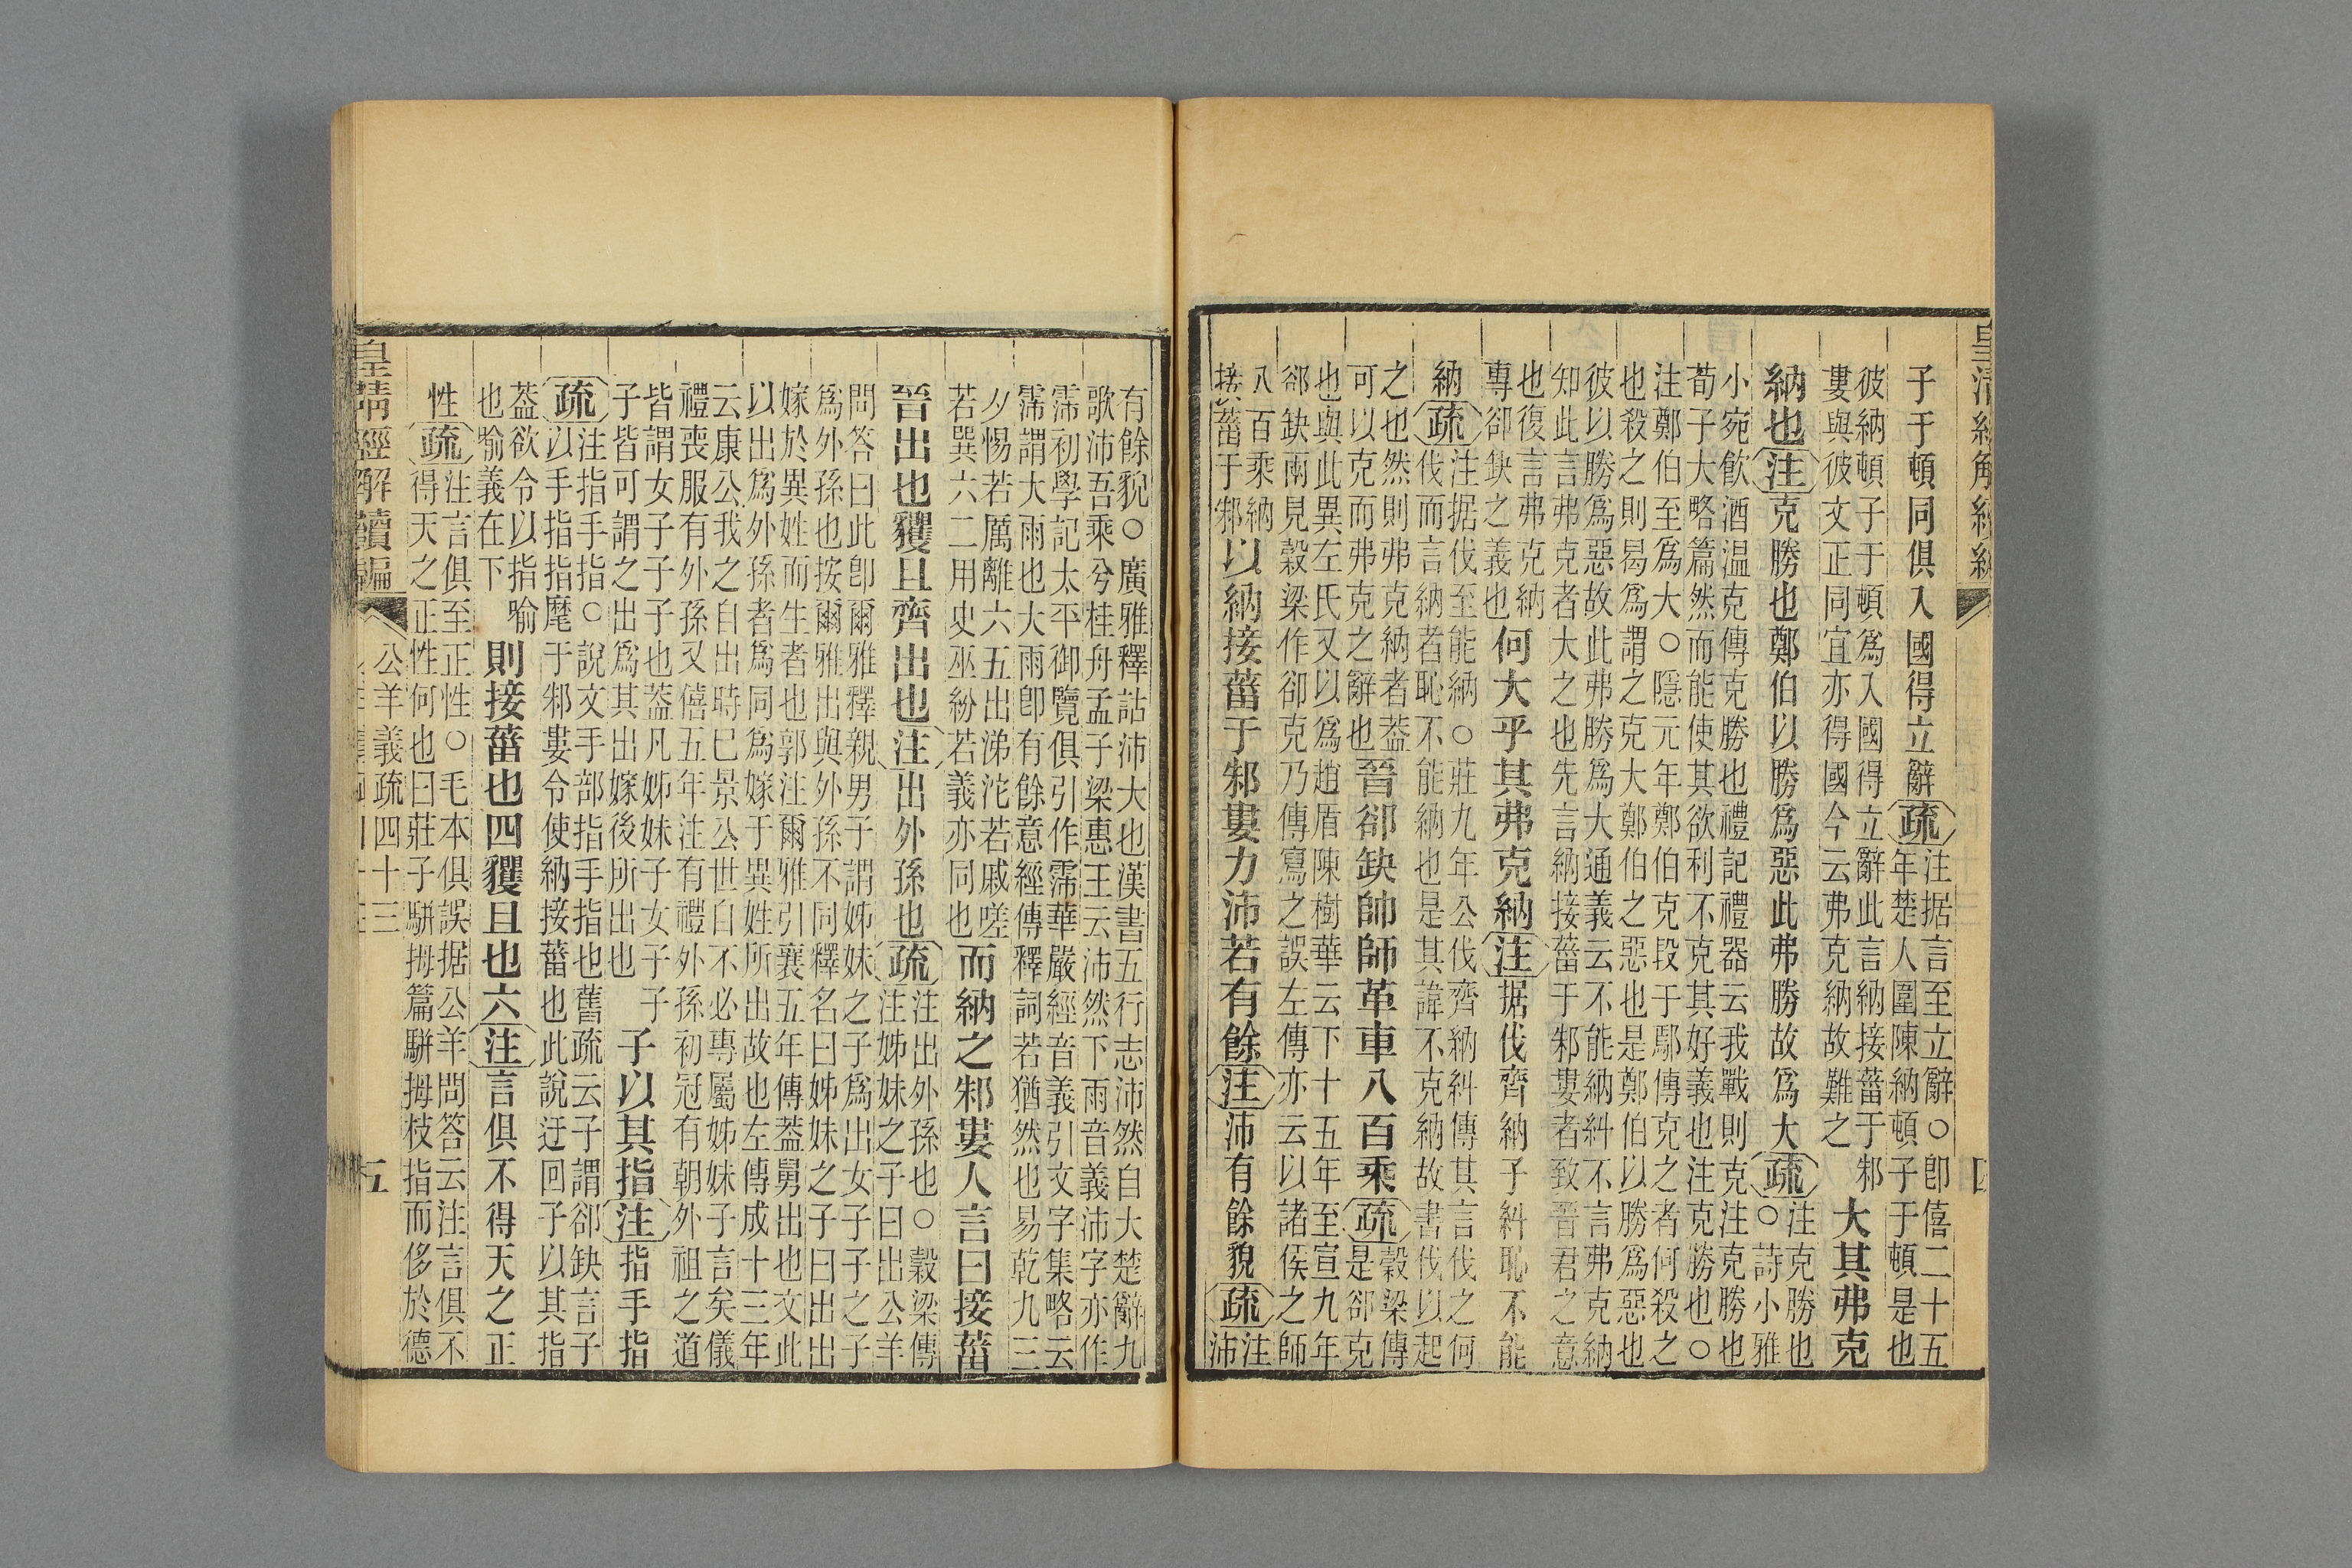 皇清經解續編
子于頓同俱入國得立辭疏注据言至立辭○即僖二十五
年楚人圍陳納頓子于頓是也
彼納頓子于頓爲入國得立辭此言納接菑于邾
婁與彼文正同宜亦得國今云弗克納故難之大其弗克
納也注克勝也鄭伯以勝爲惡此弗勝故爲大疏注克勝也
○詩小雅
小宛飲酒温克傳克勝也禮記禮器云我戰則克注克勝也
荀子大略篇然而能使其欲利不克其好義也注克勝也○
注鄭伯至爲大○隱元年鄭伯克段于鄢傳克之者何殺之
也殺之則曷爲謂之克大鄭伯之惡也是鄭伯以勝爲惡也
彼以勝爲惡故此弗勝爲大通義云不能納糾不言弗克納
知此言弗克者大之也先言納接菑于邾婁者致晉君之意
也復言弗克納
專卻缺之義也何大乎其弗克納注据伐齊納子糾恥不能
納疏注据伐至能納○莊九年公伐齊納糾傳其言伐之何
伐而言納者恥不能納也是其諱不克納故書伐以起
之也然則弗克納者蓋
可以克而弗克之辭也晉郤缺帥師革車八百乘疏穀梁傳
是郤克
也與此異左氏又以爲趙盾陳樹華云下十五年至宣九年
郤缺兩見穀梁作郤克乃傳寫之誤左傳亦云以諸侯之師
八百乘納
接菑于邾以納接菑于邾婁力沛若有餘注沛有餘貌疏注
沛
有餘貌○廣雅釋詁沛大也漢書五行志沛然自大楚辭九
歌沛吾乘兮桂舟孟子梁惠王云沛然下雨音義沛字亦作
霈初學記太平御覽俱引作霈華嚴經音義引文字集略云
霈謂大雨也大雨即有餘意經傳釋詞若猶然也易乾九三
夕惕若厲離六五出涕沱若戚嗟
若巽六二用史巫紛若義亦同也而納之邾婁人言曰接菑
晉出也貜且齊出也注出外孫也疏注出外孫也○穀梁傳
注姊妹之子曰出公羊
問答曰此即爾雅釋親男子謂姊妹之子爲出女子子之子
爲外孫也按爾雅出與外孫不同釋名曰姊妹之子曰出出
嫁於異姓而生者也郭注爾雅引襄五年傳蓋舅出也文此
以出爲外孫者爲同爲嫁于異姓所出故也左傳成十三年
云康公我之自出時巳景公世自不必專屬姊妹子言矣儀
禮喪服有外孫又僖五年注有禮外孫初冠有朝外祖之道
皆謂女子子子也蓋凡姊妹子女子子
子皆可謂之出爲其出嫁後所出也子以其指注指手指
疏注指手指○說文手部指手指也舊疏云子謂郤缺言子
以手指指麾于邾婁令使納接菑也此說迂回子以其指
蓋欲令以指喻
也喻義在下則接菑也四貜且也六注言俱不得天之正
性疏注言俱至正性○毛本俱誤据公羊問答云注言俱不
得天之正性何也曰莊子駢拇篇駢拇枝指而侈於德
皇清經解續編
公羊義疏四十三
五